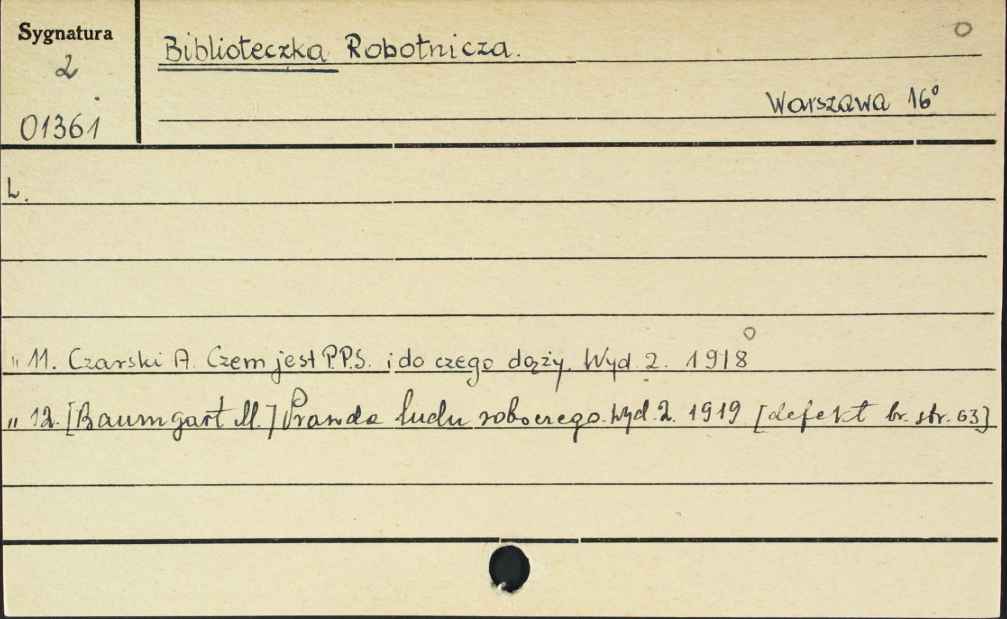 Sygnatura
2
01361
Biblioteczka Robotnicza.
Warszawa 16°
L.
" 11. Czarski A. Czem jest P.P.S. i do czego dąży. Wyd. 2. 1918
" 12. [Baumgart M.] Prawda ludu roboczego. Wyd. 2. 1919 [defekt br. str. 63]